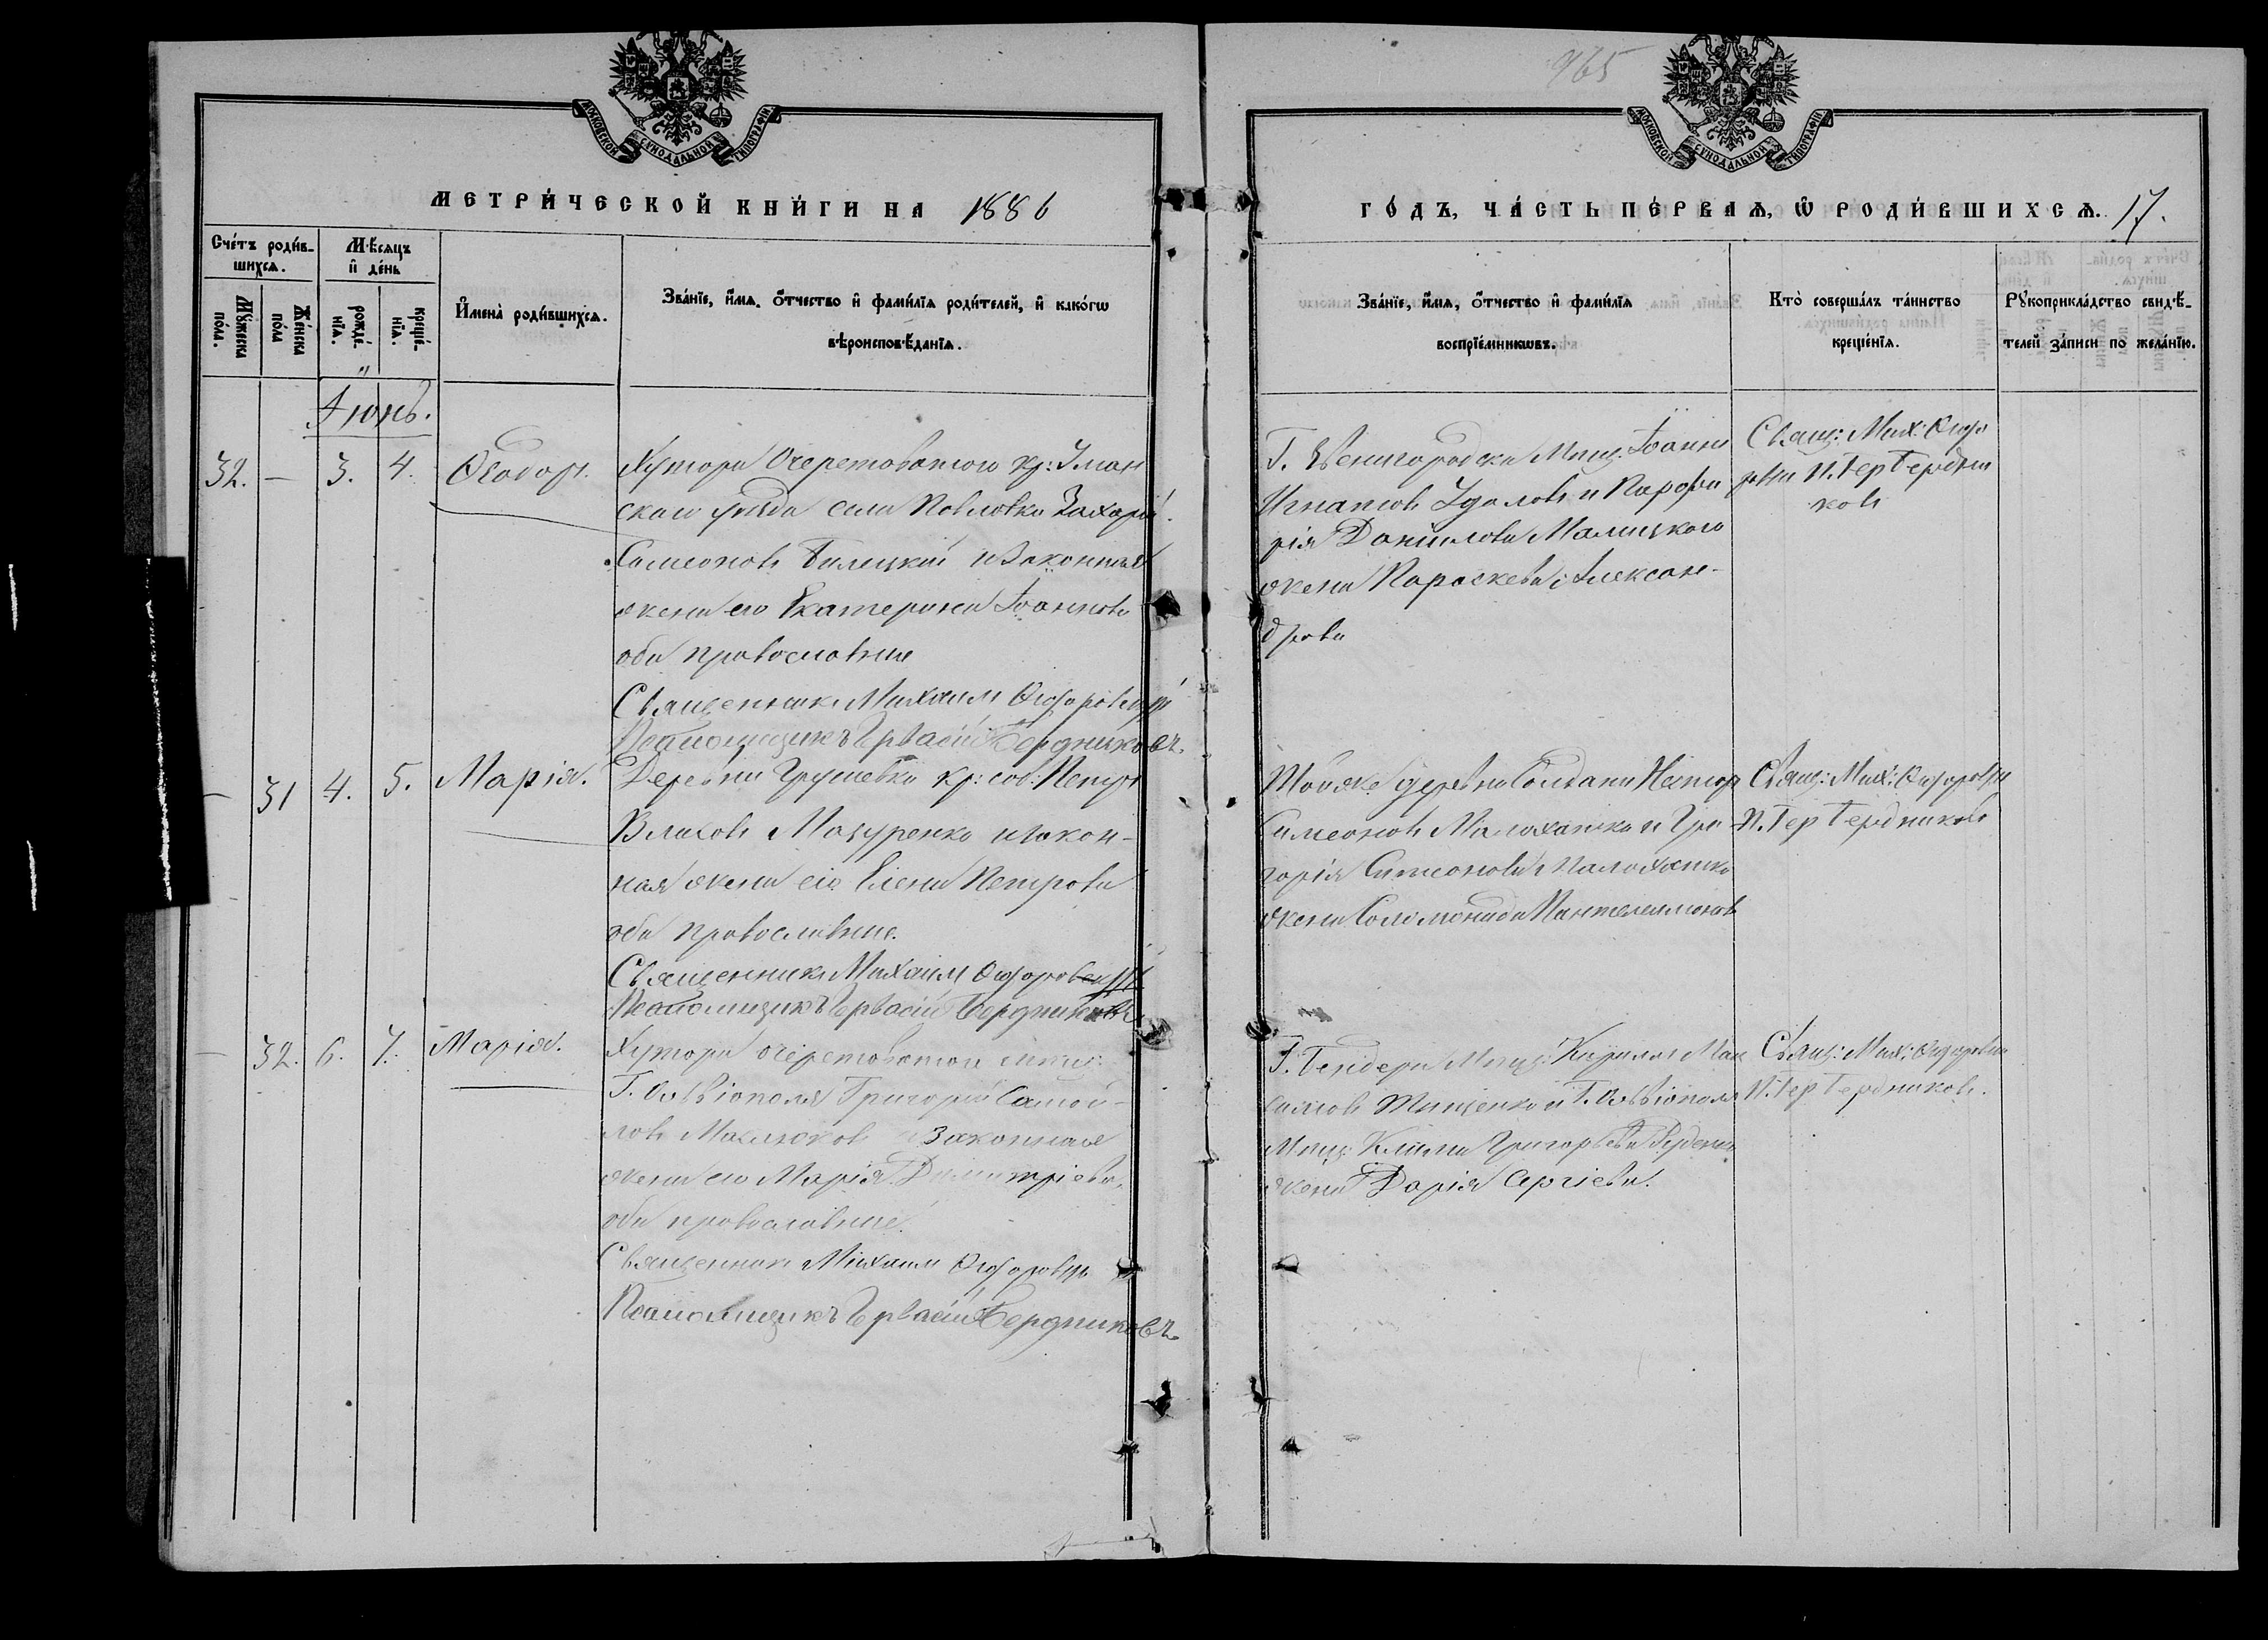 965
МОСКОВСКОЙ СУНОДАЛЬНОЙ ТИПОГРАФІИ
МОСКОВСКОЙ СУНОДАЛЬНОЙ ТИПОГРАФІИ
МЕТРИ́ЧЕСКОЙ КНИ́ГИ НА 1886
ГО́ДЪ, ЧА́СТЬ ПЕ́РВАѦ, Ѡ҆ РОДИ́ВШИХСѦ. 17.
Сче́тъ роди́в-
шихсѧ.
Мꙋ́жеска по́ла.
Же́нска по́ла
Мѣ́сѧцъ и҆ де́нь
рожде́-нїѧ.
креще́-нїѧ.
И҆мена̀ роди́вшихсѧ.
Зва́нїе, и҆́мѧ, ѻ҆́тчество и҆ фами́лїѧ роди́телей, и҆ како́гѡ
вѣроисповѣ́данїѧ.
Зва́нїе, и҆́мѧ, ѻ҆́тчество и҆ фами́лїѧ
воспрїе́мникѡвъ.
Кто̀ соверша́лъ та́инство
креще́нїѧ.
Рꙋкоприкла́дство свидѣ́-
телей за́писи по жела́нїю.
Іюнь.
32. — 3. 4. Ѳеодоръ.
Хутора Очеретоватого кр: Уман
скаго уѣзда села Павловки Захарій
Симеоновъ Билецкій и законная
жена его Екатерина Іоаннова
оба православные
Священникъ Михаилъ
Псаломщикъ Герваcій Бердниковъ.
Г. Звенигородки Мѣщ: Іоаннъ
Игнатовъ и Порфи
рія Даниилова Малицкого
жена Параскева Алексан-
дрова
Свящ: Мих:
П. Гер Бердни
ковъ
— 31 4. 5. Марія.
Деревни Грушевки кр: соб: Петръ
Власовъ Мазуренко и закон-
ная жена его Елена Петрова
оба православные.
Священникъ Михаилъ
Псаломщикъ Герваcій Бердниковъ.
Той же деревни
Симеоновъ Малохатко и Гри
горія Симеонова Малохатко
жена Соломонида Пантелеимонов
Свящ: Мих:
П. Гер Бердниковъ
— 32. 6. 7. Марія.
Хутора Очеретоватого мѣщ:
Г. Ольвіополя Григорій Самой-
ловъ и законная
жена его Марія Димитріева,
оба православные.
Священник Михаилъ
Псаломщикъ Герваcій Бердниковъ.
Г. Бендеры Мѣщ: Кириллъ Мак
симовъ Тищенко и Г. Ольвіополя
Мѣщ: Климы Григорьева
жена Дарія Сергіева.
Свящ: Мих:
П. Гер Бердниковъ.